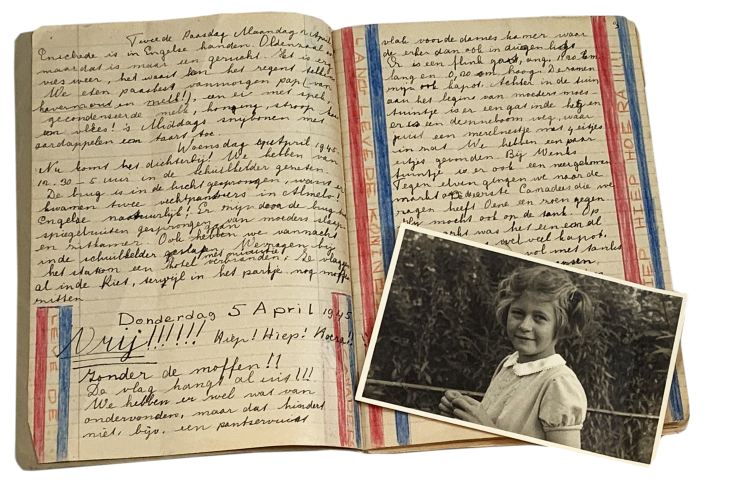 Tweede Paasdag Maandag 2 April
Enschede is in Engelse handen. Oldenzaal
maar dat is maar een gerucht. Er is erg
vies weer, het waait en het regent
We eten paasfeest vanmorgen pap (van
havermout en melk!), een ei met spek,
gecondenseerde melk, honing, stroop
en vlees! 's Middags snijbonen met
aardappelen en taart toe.
Woensdag 4 April 1945
Nu komt het dichterbij! We hebben van
12.30 - 5 uur in de schuilkelder gezeten.
De brug is in de lucht gesprongen,
kwamen twee in Almelo!
Engelse natuurlijk! Er zijn door de
spiegelruiten gesprongen van moeders slaap
en zitkamer. Ook hebben we vannacht
in de schuilkelder geslapen. Verzagen bij
het station een hotel met verbranden. De vlag
al in de kist, terwijl in het parkje nog moffen
zitten
Donderdag 5 April 1945
Vrij!!!!!! Hiep! Hiep! Hoera!
Zonder de moffen!!
De vlag hangt al uit!!!
We hebben er wel wat van
ondervonden, maar dat hindert
niet, bijv. een pantservuist
LEVE DE
CANADEZEN
vlak voor de dames kamer waar
de erker dan ook in duigen ligt.
Er is een flink gat, ong. 1.20 m
lang en 0,80 cm. hoog. De ramen
zijn ook kapot. Achter in de tuin
aan het begin van moeders moes
tuintje is er een gas inde heg en
er is een denneboom weg, waar
juist een merelnestje met 4 eitjes
in zat. We hebben een paar
eitjes gevonden. Bij Wenks
tuintje is er ook een meegekomen
Tegen elven gingen we naar de
markt De eerste Canadees die we
zagen heeft Oene een zoen gegeven.
mocht ook op de tank. Op
markt was het een en al
wel veel kapot.
vol met tanks
LANG LEVE DE KONINGIN
HIEP HIEP HOERA!!!!